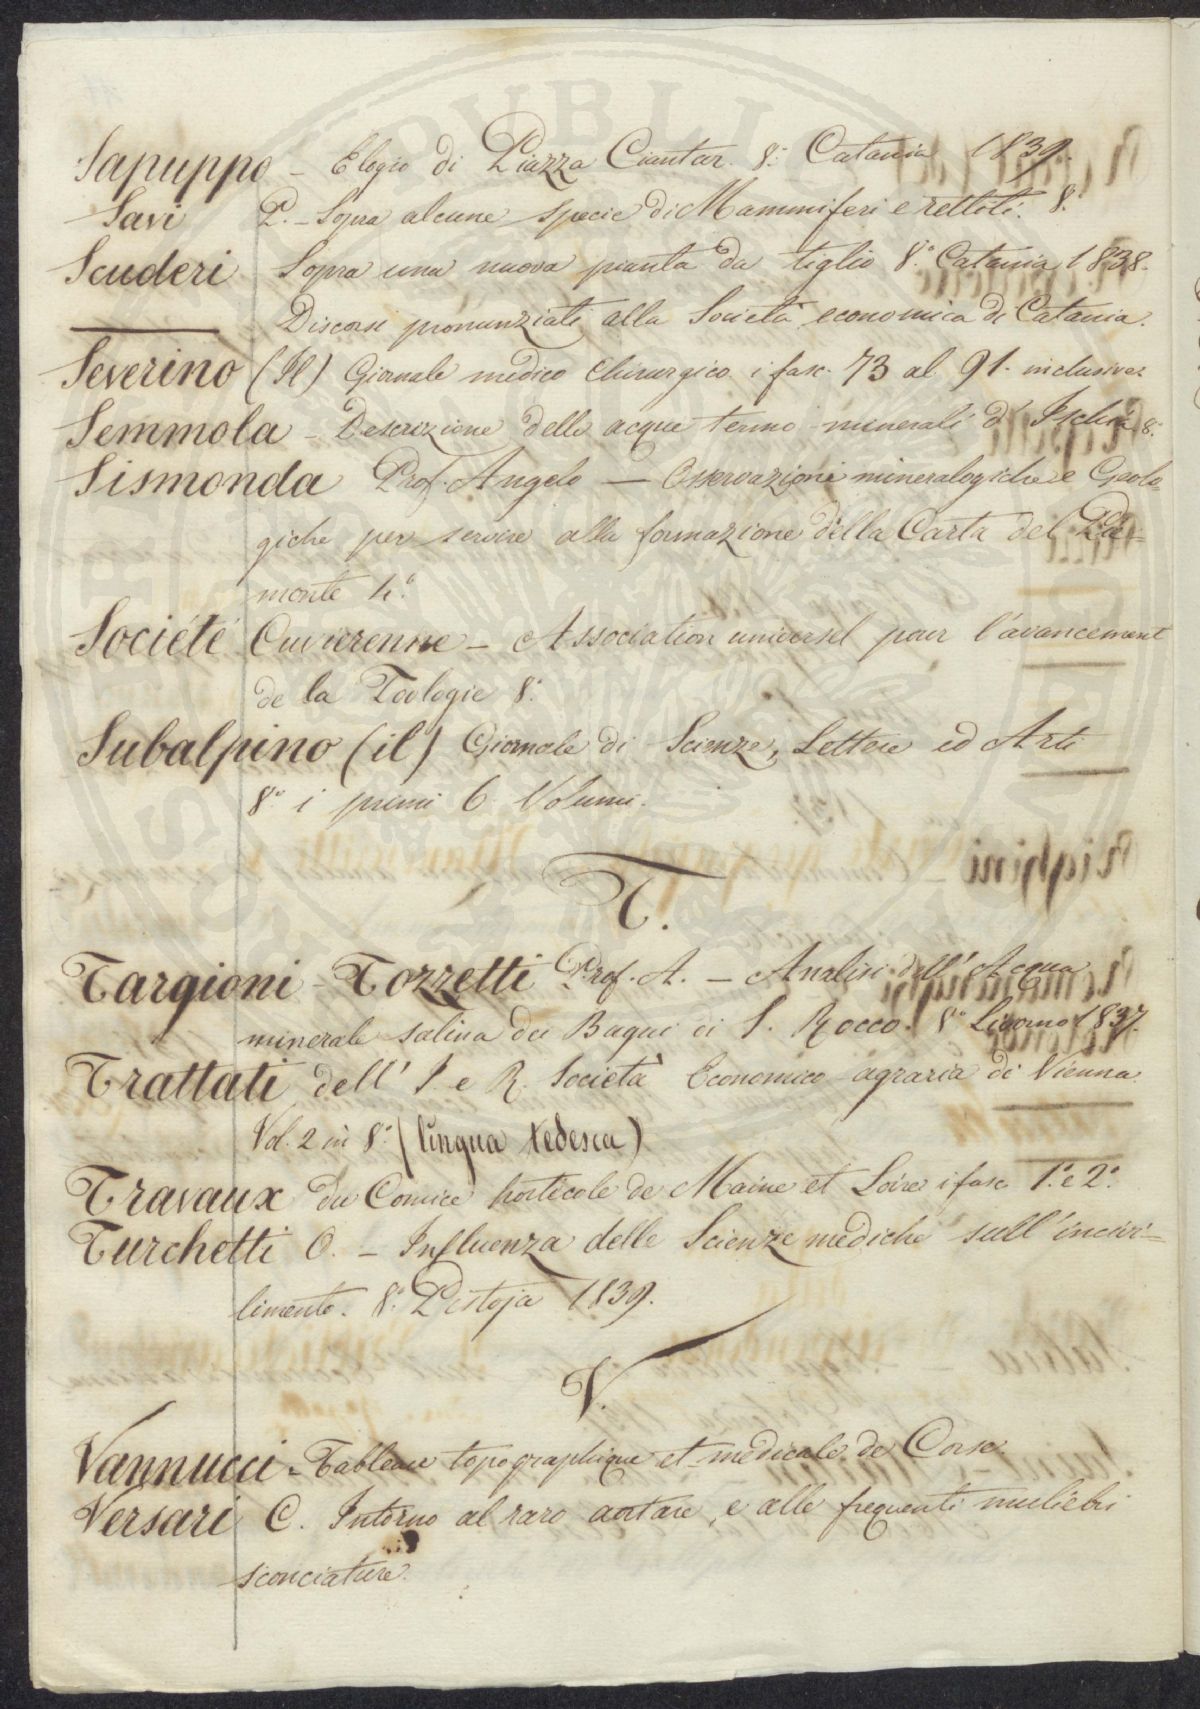 Sapuppo – Elogio di Piazza Ciantar. 8.° Catania 1839.
Savi P. – Sopra alcune specie di Mammiferi e rettoli. 8.°
Scuderi Sopra una nuova pianta da tiglio 8.° Catania 1838.
——— Discorsi pronunziati alla Società economica di Catania.
Severino (Il) Giornale medico chirurgico i fasc. 73 al 91. inclusive.
Semmola – Descrizione delle acque termo-minerali d'Ischia 8.°
Sismonda Prof. Angelo — Osservazioni mineralogiche e Geolo-
giche per servire alla formazione della Carta del Pie-
monte 4.°
Société Cuvierenne – Association universel pour l'avancement
de la Zoologie 8.°
Subalpino (il) Giornale di Scienze, Lettere ed Arti
8.° i primi 6 Volumi.
T.
Targioni-Tozzetti Prof. A. – Analisi dell'Acqua
minerale salina dei Bagni di S. Rocco. 8.° Livorno 1837.
Trattati dell'I. e R. Società Economico agraria di Vienna
Vol. 2 in 8.° (lingua tedesca)
Travaux du Comice horticole de Maine et Loire i fasc 1.° e 2.°
Turchetti O. – Influenza delle Scienze mediche sull'incivi-
limento. 8.° Pistoja 1839.
V.
Vannucci – Tableau topographique et medicale de Corse
Versari C. Intorno al raro aortare, e alle frequenti muliebri
sconciature.